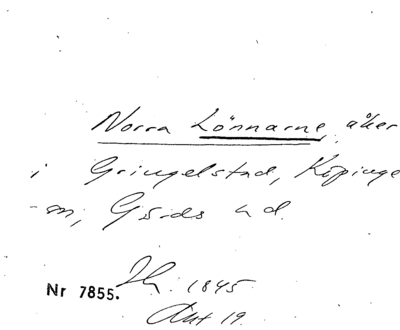 Norra Lönnarne, åker
i Gringelstad, Köpinge
-m, Gärds hd.
Nr 7855.
Th. 1845
Akt 19.